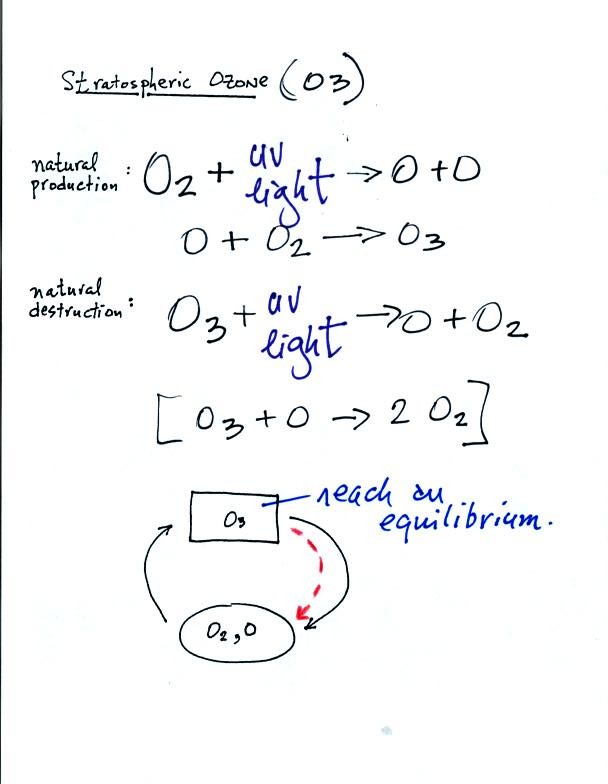 Stratospheric Ozone (O3)
natural production : O2 + uv light → O + O
O + O2 → O3
natural destruction : O3 + uv light → O + O2
[ O3 + O → 2 O2 ]
O3
reach an equilibrium.
O2, O